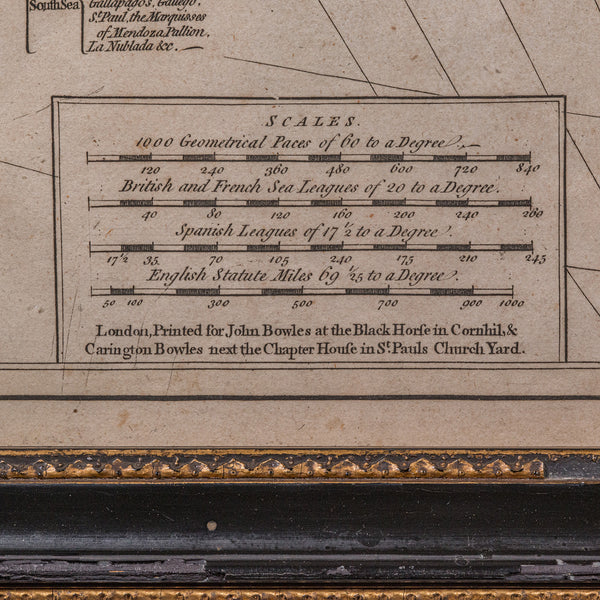 South Sea
Gallapagos, Gallego,
St. Paul, the Marquisses
of Mendoza Pallion.
La Nublada &c.
SCALES.
1000 Geometrical Paces of 60 to a Degree.
120 240 360 480 600 720 840
British and French Sea Leagues of 20 to a Degree.
40 80 120 160 200 240 260
Spanish Leagues of 17 1/2 to a Degree.
17 1/2 35 70 105 140 175 210 245
English Statute Miles 69 1/25 to a Degree.
50 100 300 500 700 900 1000
London, Printed for John Bowles at the Black Horſe in Cornhil, &
Carington Bowles next the Chapter Houſe in St. Pauls Church Yard.